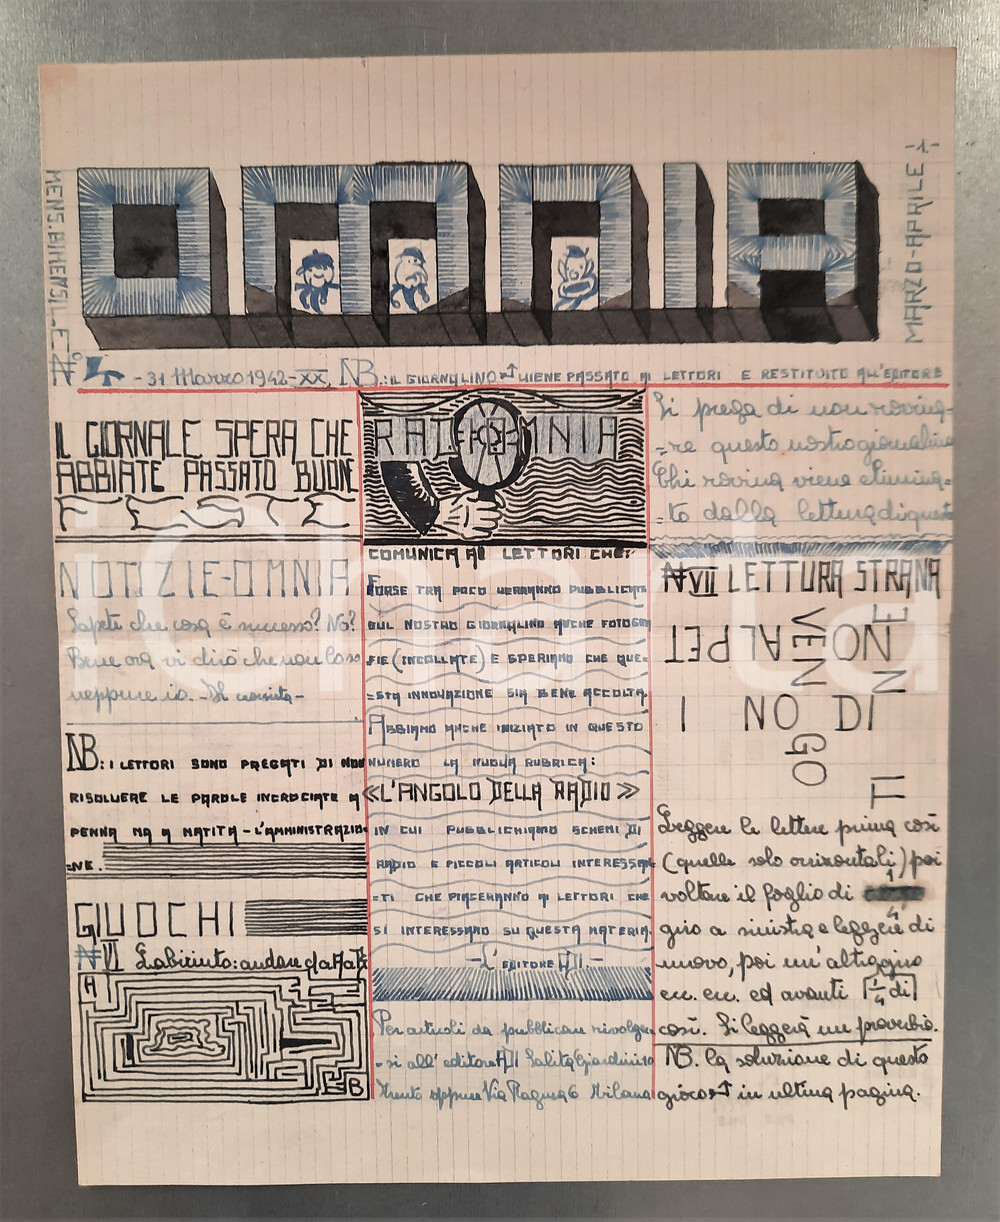 OMNIA
MENS. BIMENSILE
MARZO-APRILE
N° 4 - 31 Marzo 1942-XX, NB.: IL GIORNALINO VIENE PASSATO AI LETTORI E RESTITUITO ALL'EDITORE
IL GIORNALE SPERA CHE
ABBIATE PASSATO BUONE
FESTE
NOTIZIE-OMNIA
Sapete che cosa è successo? No?
Bene ora vi dirò che non lo so
neppure io. - Il cronista -
NB: I LETTORI SONO PREGATI DI NON
RISOLVERE LE PAROLE INCROCIATE A
PENNA MA A MATITA - L'AMMINISTRAZIO=
=NE.
GIUOCHI
N VI Labirinto: andare da A a B
A
B
RADIOMNIA
COMUNICA AI LETTORI CHE:
FORSE TRA POCO VERRANNO PUBBLICATE
SUL NOSTRO GIORNALINO ANCHE FOTOGRA
FIE (INCOLLATE) E SPERIAMO CHE QUE=
=STA INNOVAZIONE SIA BENE ACCOLTA.
ABBIAMO ANCHE INIZIATO IN QUESTO
NUMERO LA NUOVA RUBRICA:
«L'ANGOLO DELLA RADIO»
IN CUI PUBBLICHIAMO SCHEMI DI
RADIO E PICCOLI ARTICOLI INTERESSAN
=TI CHE PIACERANNO A LETTORI CHE
SI INTERESSANO SU QUESTA MATERIA.
- L'EDITORE
Per articoli da pubblicare rivolger
-si all'editore Salita Giardini 10
Trento oppure Via Ragusa 6 Milano
Si prega di non rovina-
=re questo nostro giornalino
Chi rovina viene elimina=
=to dalla lettura di questo
N VII LETTURA STRANA
NO AL PET
VEN
NO
I NO DI
GO
Leggere le lettere prima così
(quelle solo orizzontali) poi
voltare il foglio di 1/4
giro a sinistra e leggere di
nuovo, poi un'altro giro
ecc. ecc. ed avanti [1/4 di]
così. Si leggerà un proverbio.
NB. la soluzione di questo
gioco in ultima pagina.
iCharta